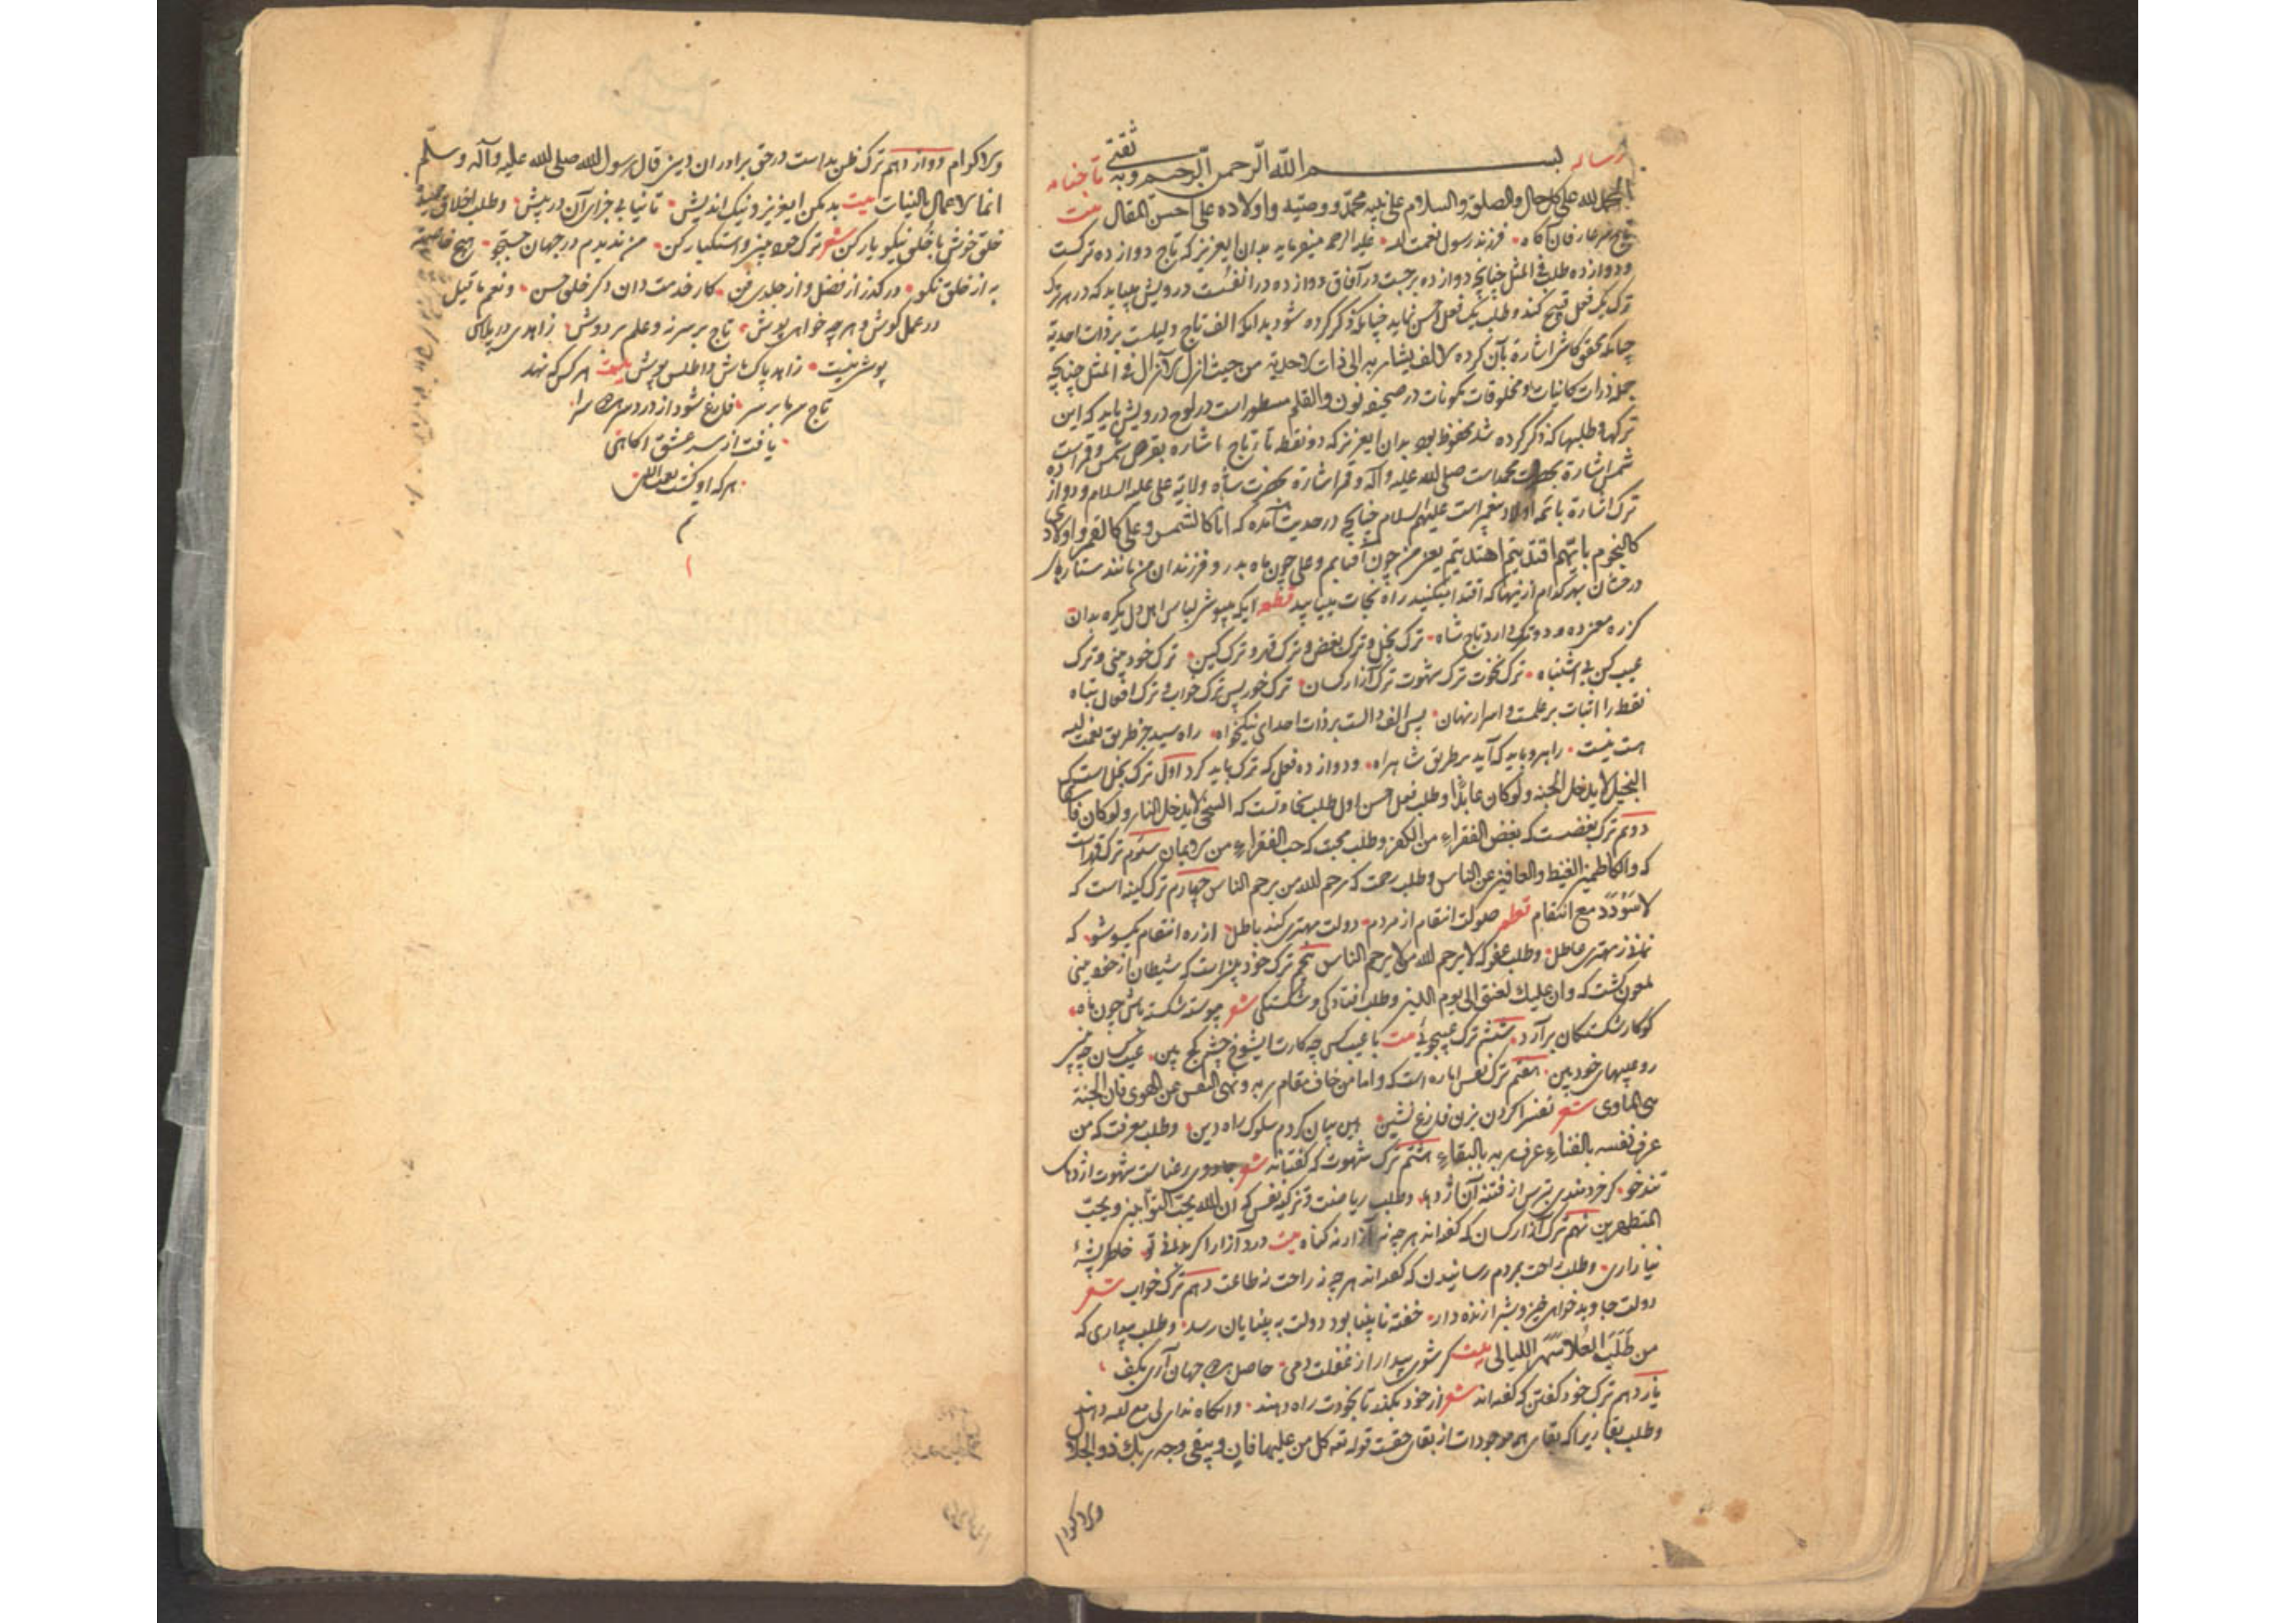 رساله بسم الله الرحمن الرحیم وبه ثقتی تاجنامه
الحمد لله علی کل حال والصلوة والسلام علی نبیه محمد ووصیه واولاده علی احسن المقال بیت
عارفان آگاه فرزند رسول نعمت الله علیه الرحمه میفرماید بدان ایعزیز که تاج دوازده ترکست
ودوازده طلب فی المثل چنانچه دوازده برجست در آفاق دوازده در انفسست درویش میباید که در هر ترک
ترک یک فعل قبیح کند وطلب یک فعل احسن نماید چنانکه ذکر کرده شود بدانکه الف تاج دلیلست بر ذات احدیة
چنانکه محقق کاشی اشارة بآن کرده الالف یشار به الی ذات الاحدیة من حیث ازل الآزال فی المثل چنانچه
جمله ذرات کاینات ومخلوقات مکونات در صحیفه نون والقلم مسطور است در لوح درویش باید که این
ترکها وطلبها که ذکر کرده شد محفوظ بود بدان ایعزیز که دو نقطه تا تاج اشاره بقرص شمس وقمر است
شمس اشارة بحضرت محمد است صلی الله علیه وآله وقمر اشارة بحضرت شاه ولایة علی علیه السلام ودوازده
ترک اشارة بائمه اولاد پیغمبر است علیهم السلام چنانچه در حدیث آمده که انا کالشمس وعلی کالقمر واولادی
کالنجوم بایهم اقتدیتم اهتدیتم یعنی من چون آفتابم وعلی چون ماه بدر وفرزندان من مانند ستارهای
درخشان بهر کدام ازینها که اقتدا میکنید راه نجات مییابید قطعه ایکه میپوشی لباس اهل دل یکره بدان
کز ره معنی ده ودو ترک دارد تاج شاه ترک بخل وترک بغض وترک قهر وترک کین ترک خود بینی وترک
عیب کن بی اشتباه ترک نخوت ترک شهوت ترک آزار کسان ترک خور پس ترک خواب وترک افعال تباه
نقطه را اثبات بر علمست واسرار نهان پس الف دالست بر ذات احد ای نیکخواه راه سید جز طریق نعمت الله
هست نیست راهرو باید که آید بر طریق شاهراه ودوازده فعلی که ترک باید کرد اول ترک بخل است که
البخیل لا یدخل الجنة ولو کان عابدا وطلب فعل حسن اول طلب سخاوتست که السخی لا یدخل النار ولو کان فاسقا
دوم ترک بغضست که بغض الفقراء من الکفر وطلب محبت که حب الفقراء من الایمان سیوم ترک قهر است
که والکاظمین الغیظ والعافین عن الناس وطلب رحمت که یرحم الله من یرحم الناس چهارم ترک کینه است که
لا سؤدد مع انتقام قطعه صولت انتقام از مردم دولت مهتری کند باطل از ره انتقام یکسو شو که
نمانی ز مهتری عاطل وطلب عفو که لا یرحم الله من لا یرحم الناس پنجم ترک خود بینی است که شیطان از خود بینی
ملعون گشت که وان علیک لعنتی الی یوم الدین وطلب افتادگی وشکستگی شعر پیوسته شکسته باش چون ماه
کو کار شکستگان برآرد ششم ترک عیبجوئی بیت با عیب کسی چه کارت ایشوخ چشم کج ببین عیب کسان چه
رو عیبهای خود ببین هفتم ترک نفس اماره است که واما من خاف مقام ربه ونهی النفس عن الهوی فان الجنة
هی المأوی شعر نفس را گردن بزن فارغ نشین این بیان کردم سلوک راه دین وطلب معرفت که من
عرف نفسه بالفناء عرف ربه بالبقاء هشتم ترک شهوت که گفته‌اند شعر جادوی رعناست شهوت اژدهای
تندخو گر خردمندی بترس از فتنه آن اژدها وطلب ریاضت وتزکیه نفس که ان الله یحب التوابین ویحب
المتطهرین نهم ترک آزار کسان که گفته‌اند هر چه نه آزار نه گناه بیت درد آزار را گر تو خاطر پشه
نیازاری وطلب راحت بمردم رسانیدن که گفته‌اند هر چه نه راحت نه طاعت دهم ترک خواب شعر
دولت جاوید خواهی خیز وشب را زنده دار خفته نابینا بود دولت به بینایان رسد وطلب بیداری که
من طلب العلا سهر اللیالی بیت گر شوی بیدار از غفلت دمی حاصل هر دو جهان آری بکف
یازدهم ترک خود گفتن که گفته‌اند شعر از خود بگذر تا بخودت راه دهند وانگاه ندای لی مع الله دهند
وطلب بقا زیرا که بقای همه موجودات از بقای حقست قوله تعه کل من علیها فان ویبقی وجه ربک ذو الجلا
والاکرام
والاکرام دوازدهم ترک ظن بد است در حق برادران دینی قال رسول الله صلی الله علیه وآله وسلم
انما الاعمال بالنیات بیت بد مکن ایعزیز ونیک اندیش تا نیابی جزای آن در پیش وطلب اخلاق
خلق خوش با خلق نیکو یار کن شعر ترک خود بینی واستکبار کن من ندیدم در جهان جستجو هیچ
به از خلق نکو در گذر از فضل واز جلدی وفن کار خدمت دان دگر خلق حسن ونعم ما قیل
در عمل کوش وهر چه خواهی پوش تاج بر سر نه وعلم بر دوش زاهدی در پلاس
پوشی نیست زاهد پاک باش واطلس پوش بیت هر کس که نهد
تاج سر ما بر سر فارغ شود از درد
یافت از سر عشق آگاهی
هر که او گشت نعمت اللهی
م